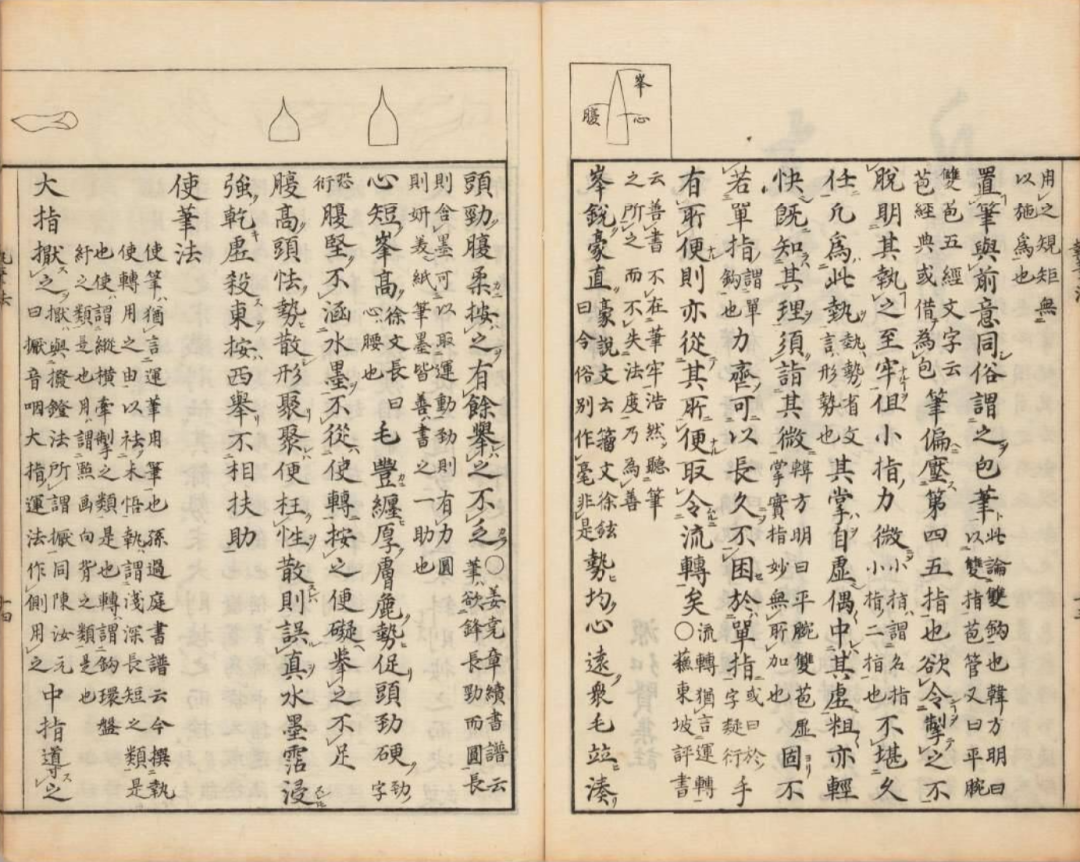 用之規矩無
以施為也
置筆與前意同俗謂之包筆此論雙鈎也韓方明曰
以雙指苞管又曰平腕
雙苞五經文字云
苞經典或借為包筆偏壓第四五指也欲令掣之不
脫明其執之至牢但小指力微小指謂名指
小指二指也不堪久
任凢為此執執勢省文
言形勢也其掌自虛偶中其虛粗亦輕
快旣知其理須詣其微韓方明曰平腕雙苞虛
掌實指妙無所加也固不
若單指謂單
鈎也力齊可以長久不困於單指或曰於
字疑衍手
有所便則亦從其所便取令流轉矣○流轉猶言運轉
蘇東坡評書
云善書不在筆牢浩然聽筆
之所之而不失法度乃為善
峯銳豪直豪說文云籀文徐鉉
曰今俗別作毫非是勢均心遠衆毛竝湊
峯
心
腹
頭勁腹柔按之有餘舉之不乏○姜堯章續書譜云
筆欲鋒長勁而圓長
則含墨可以取運動勁則有力圓
則妍美紙筆墨皆善書之一助也
心短峯高徐文長曰
心腰也毛豐纏厚膚麁勢促頭勁硬勁字
恐
衍腹堅不涵水墨不從使轉按之便礙舉之不足
腹高頭怯勢散形聚聚便杜性散則誤真水墨霑浸
強乾虛殺東按西舉不相扶助
使筆法
使筆猶言運筆用筆也孫過庭書譜云今撰執
使轉用之由以祛未悟執謂淺深長短之類是
也使謂縱橫牽掣之類是也轉謂鈎環盤
紆之類是也用謂㸃画向背之類是也
大指擫之擫與撥鐙法所謂擫同陳汝元
曰擫音咽大指運法作側用之中指導之